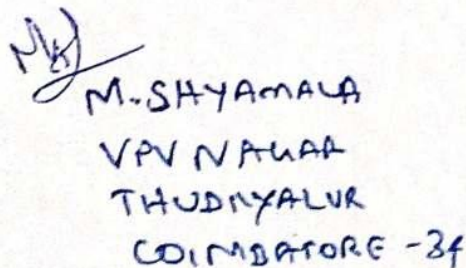 M. SHYAMALA
VPV NAGAR
THUDIYALUR
COIMBATORE - 34